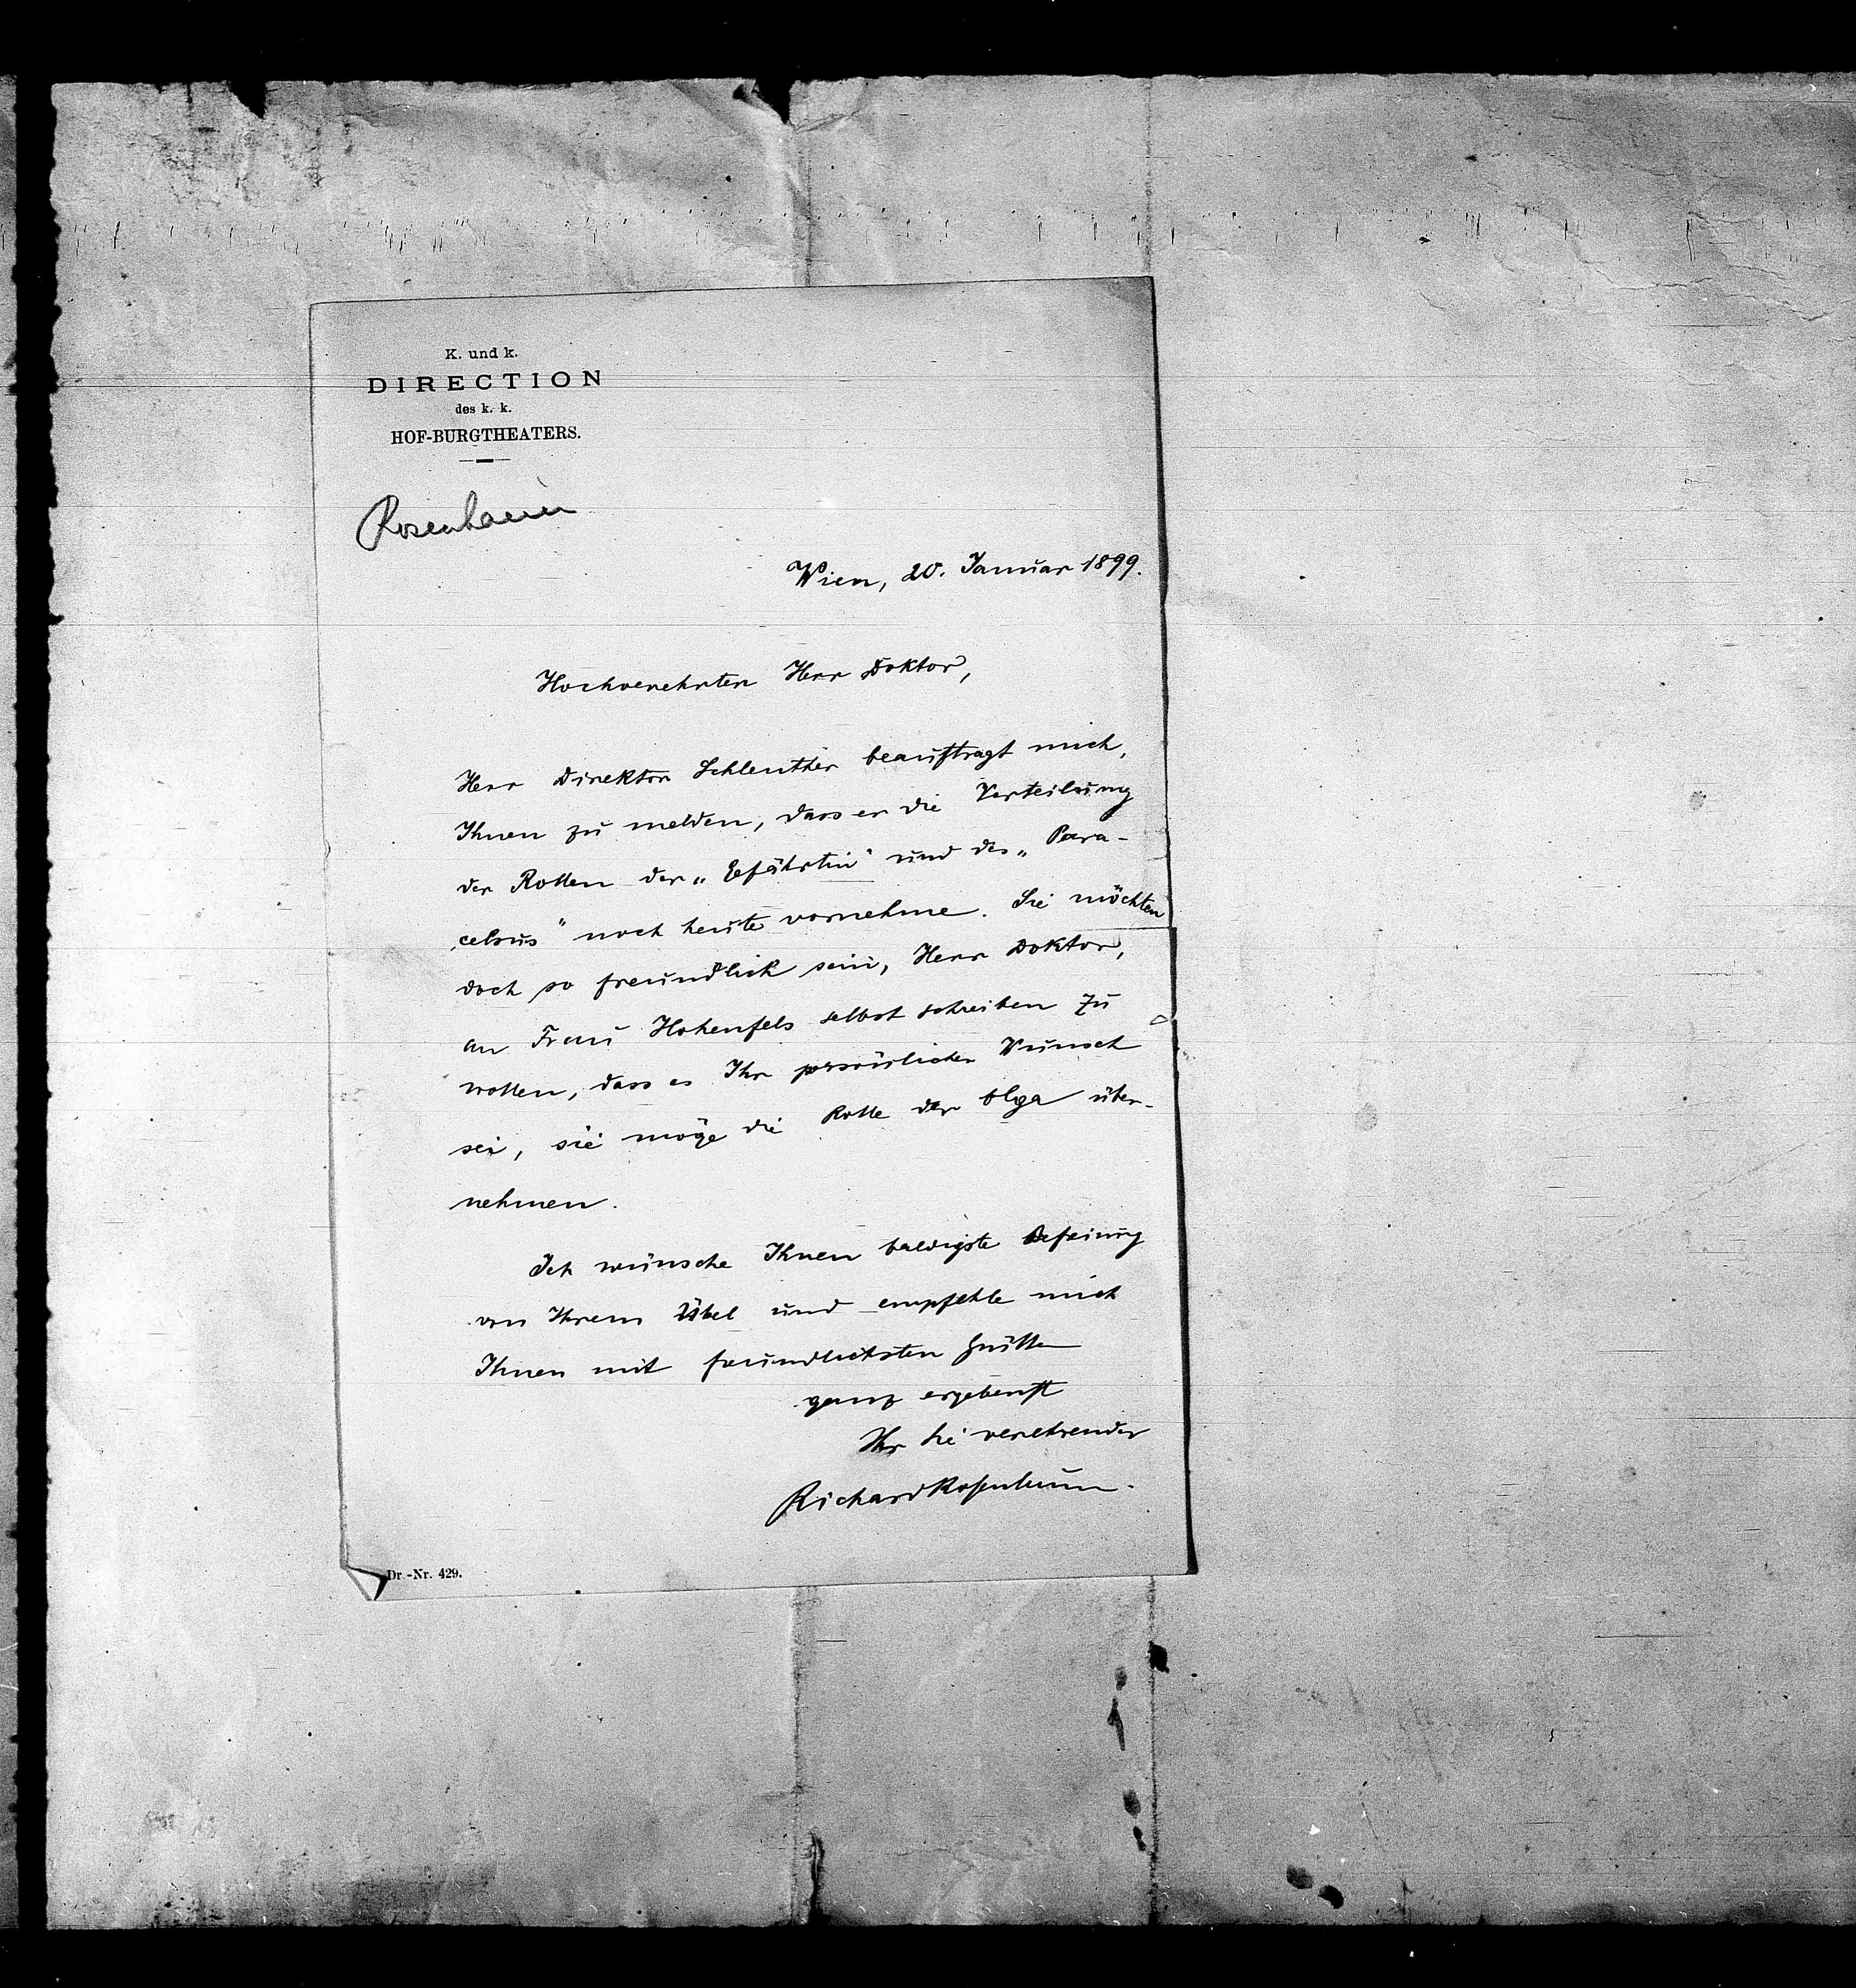 K. und k.
DIRECTION
des k. k.
HOF-BURGTHEATERS.
Rosenbaum
Wien, 20. Januar 1899.
Hochverehrter Herr Doktor,
Herr Direktor Schlenther beauftragt mich,
Ihnen zu melden, dass er die Verteilung
der Rollen der „Gefährtin“ und des „Para-
celsus“ noch heute vornehme. Sie möchten
doch so freundlich sein, Herr Doktor,
an Frau Hohenfels selbst schreiben zu
wollen, dass es Ihr persönlicher Wunsch
sei, sie möge die Rolle der Olga über-
nehmen.
Ich wünsche Ihnen baldigste Befreiung
von Ihrem Übel und empfehle mich
Ihnen mit freundlichsten Grüßen
ganz ergebenst
Ihr Sie verehrender
Richard Rosenbaum.
Dr.-Nr. 429.